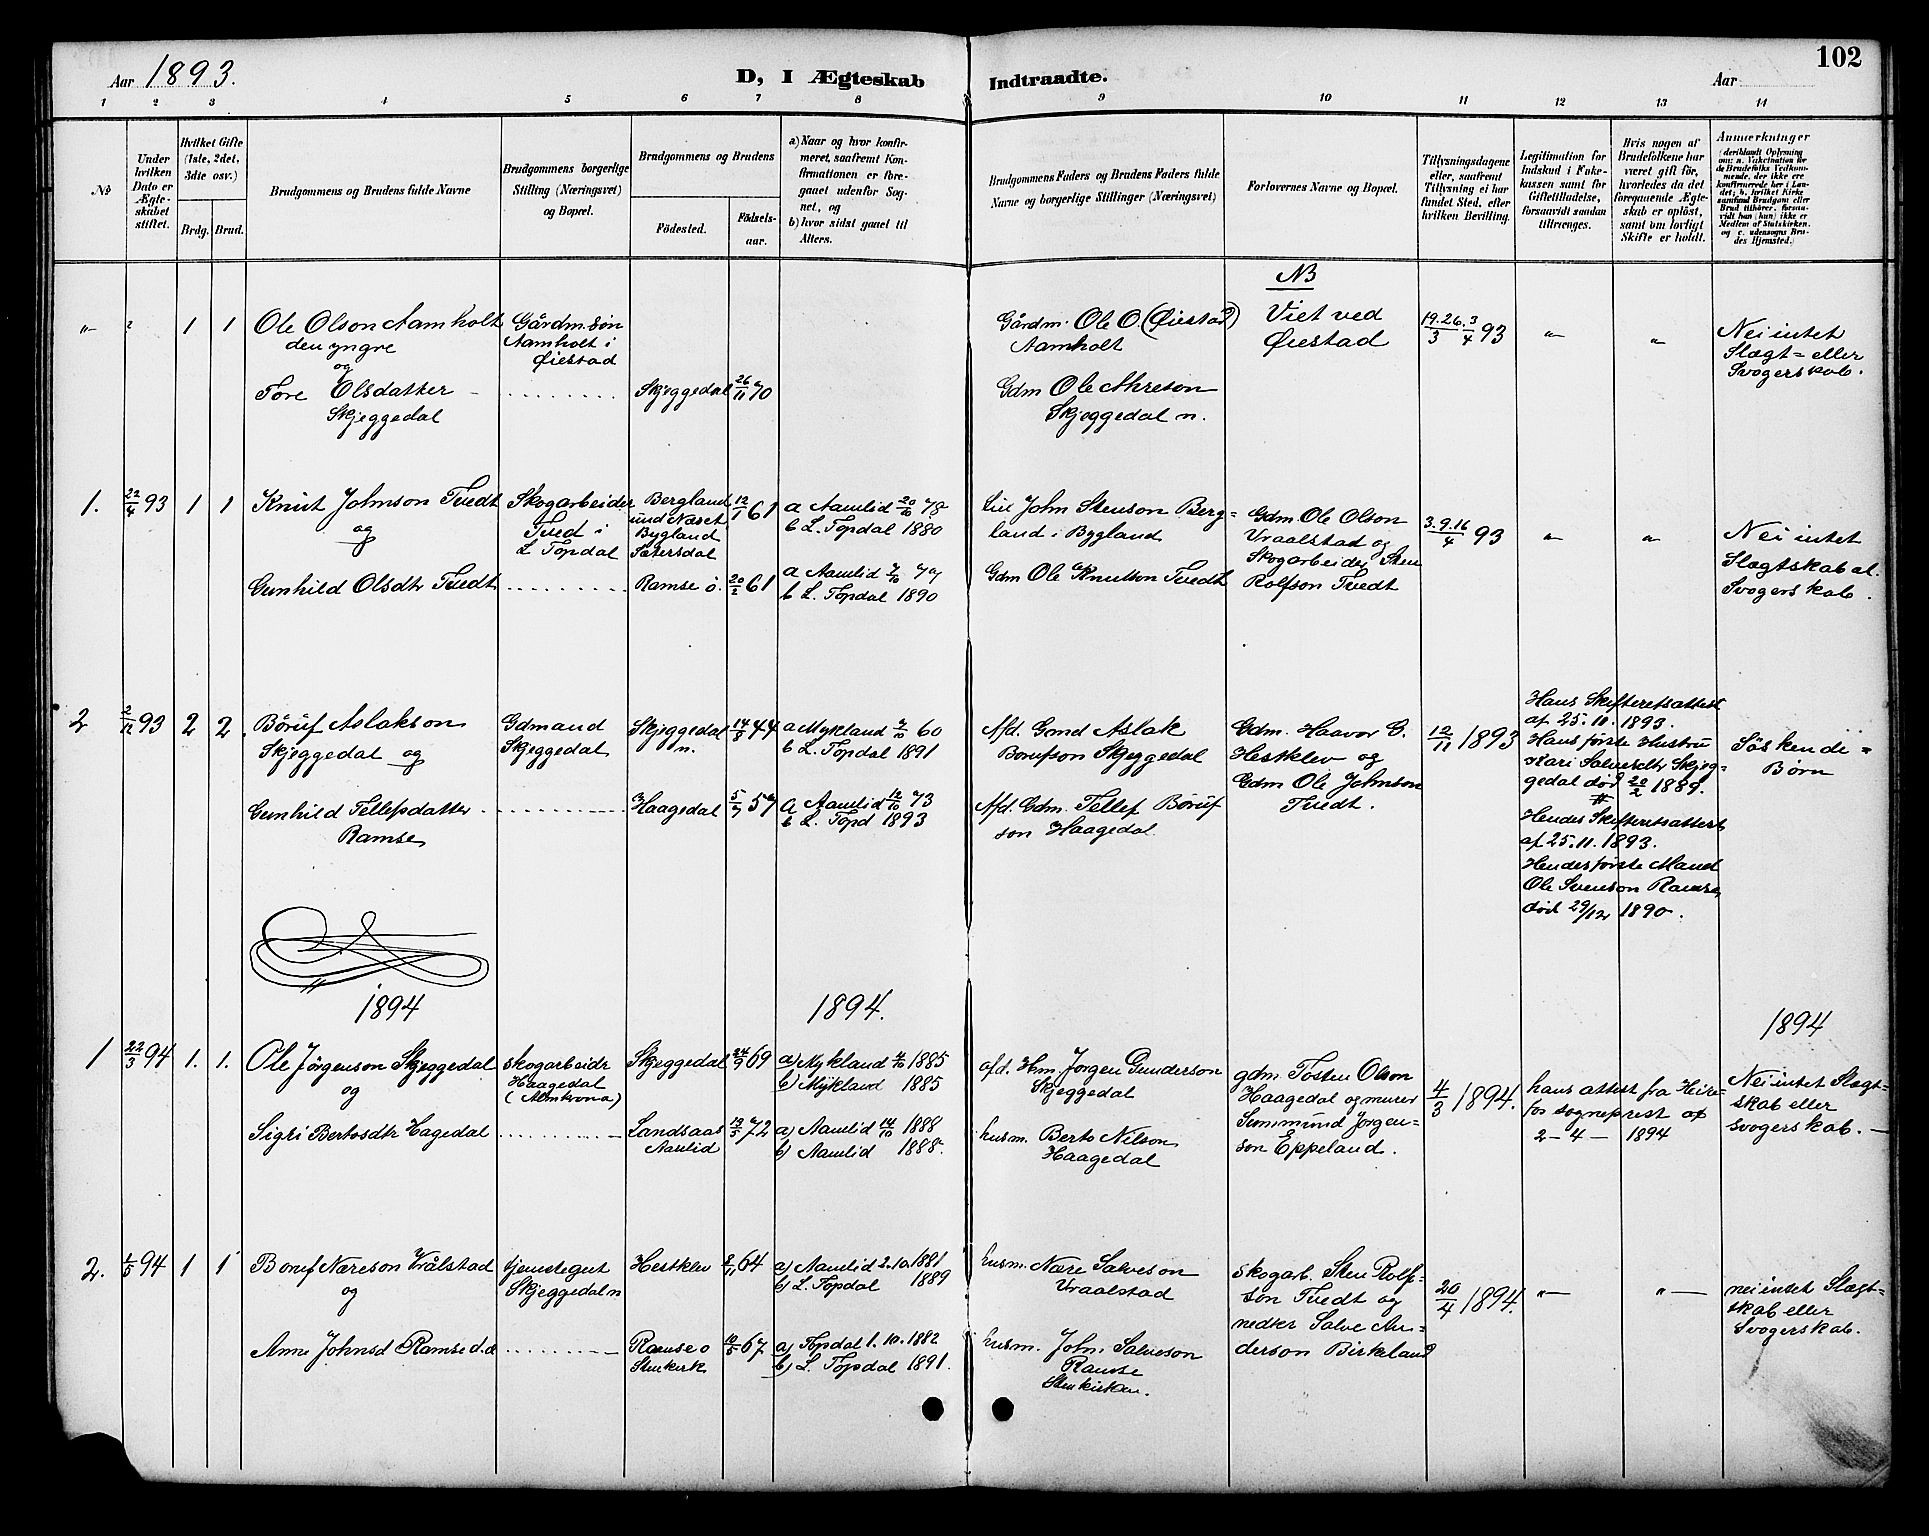 102
Aar 1893.
D, I Ægteskab Indtraadte.
Aar
1 2 3 4 5 6 7 8 9 10 11 12 13 14
No
Under hvilken Dato er Ægteskabet stiftet.
Hvilket Gifte (1ste, 2det, 3die osv.)
Brdg. Brud.
Brudgommens og Brudens fulde Navne
Brudgommens borgerlige Stilling (Næringsvei) og Bopæl.
Brudgommens og Brudens
Födested.
Födselsaar.
a) Naar og hvor konfirmeret, saafremt Konfirmationen er foregaaet udenfor Sognet, og
b) hvor sidst gaaet til Alters.
Brudgommens Faders og Brudens Faders fulde Navne og borgerlige Stillinger (Næringsvei)
Forlovernes Navne og Bopæl.
Tillysningsdagene eller, saafremt Tillysning ei har fundet Sted, efter hvilken Bevilling.
Legitimation for Indskud i Enkekassen samt for Giftetilladelse, forsaavidt saadan tiltrænges.
Hvis nogen af Brudefolkene har været gift för, hvorledes da det foregaaende Ægteskab er oplöst, samt om lovligt Skifte er holdt.
Anmærkninger (deriblandt Oplysning om: a. Vakcination för de Brudefolks Vedkommende, der ikke ere konfirmerede her i Landet; b. hvilket Kirkesamfund Brudgom eller Brud tilhörer, forsaavidt han (hun) ikke er Medlem af Statskirken, og c. udensogns Brudes Hjemsted.)
"
1 1
Ole Olson Aamholt
den yngre
og
Tore Olsdatter
Skjeggedal
Gårdm. søn
Aamholt i
Øiestad
Skjeggedal 26/11 70
Gårdm. Ole O. (Øiestad)
Aamholt
Gdm Ole Aareson
Skjeggedal n.
NB
Viet ved
Øiestad
19.26./3 3/4 93
"
"
Nei intet
Slægt= eller
Svogerskab.
1. 22/4 93 1 1
Knut Johnson Tvedt
og
Gunhild Olsdtr Tvedt
Skogarbeider
Tved i
L Topdal
Bergland
und Næset
Bygland
Sætersdal
12/1 61
Ramse ö. 20/2 61
a Aamlid 20/10 78
b L. Topdal 1880
a Aamlid 7/10 77
b L. Topdal 1890
John Stenson Berg=
land i Bygland
Gdm Ole Knutson Tvedt
Gdm. Ole Olson
Vraalstad og
Skogarbeider Sten
Rolfson Tvedt
3.9.16/4 93
"
"
Nei intet
Slægtskab el.
Svogerskab.
2 2/12 93 2 2
Børuf Aslakson
Skjeggedal og
Gunhild Tellefsdatter
Ramse
Gdmand
Skjeggedal
Skjeggedal
n.
14/8 44
Haagedal 5/7 57
a Mykland 7/10 60
b L. Topdal 1891
a Aamlid 12/10 73
b L. Topd 1893
Afd. Gmd Aslak
Borufson Skjeggedal
Afd. Gdm. Tellef Børuf
son Haagedal
Gdm. Haavor G.
Hestklev og
Gdm Ole Johnson
Tvedt.
12/11 1893
Hans Skifteretsattest
af 25.11.1893.
Hans første Hustru
Kari Salvesdtr Skjeg-
gedal død 20/2 1889.
Hendes Skifteretsattest
af 25.11.1893.
Hendes første Mand
Ole Svenson Ramse
død 29/12 1890.
Söskende=
Børn
1894
1894.
1894
1 22/3 94 1. 1.
Ole Jørgenson Skjeggedal
og
Sigri Bertosdtr Hagedal
skogarbeidr
Haagedal
(Aamkrona)
Skjeggedal 24/9 69
Landsaas
Aamlid
19/5 72
a) Mykland 4/10 1885
b) Mykland 1885
a) Aamlid 14/10 1888
b) Aamlid 1888.
afd. Hm. Jørgen Gunderson
Skjeggedal
husm. Berto Nilson
Haagedal
gdm. Tosten Olson
Haagedal og murer
Summund Jørgen=
son Eppeland.
4/3 1894.
hans attest fra Heire=
for sogneprest af
2-4- 1894
Nei intet Slægt=
skab eller
svogerskab. -
2. 1/5 94 1 1
Boruf Næreson Vrålstad
og
Anne Johnsd Ramse d.æ
tjenstegut
Skjeggedal n
Hestklev 8/11 64
Ramse o
Stenkirk
10/5 67
a) Aamlid 2.10.1881
b) L. Topdal 1889
a) Topdal 1.10.1882
b) L. Topdal 1891.
husm. Nære Salveson
Vraalstad
husm. John Salveson
Ramse
Stenkirken.
skogarb. Sten Rolf=
son Tvedt og
nedkr Salve An=
derson Birkeland
20/4 1894.
"
"
nei intet Slægt=
skab eller
Svogerskab.